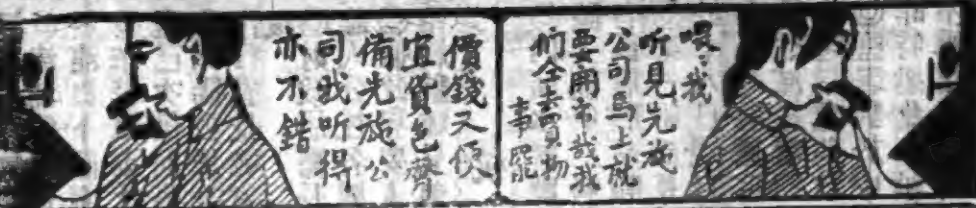 喂我
听見先施
公司馬上就
要開市哉我
們全去買物
事罷
價錢又便
宜貨色齊
備先施公
司我听得
亦不錯